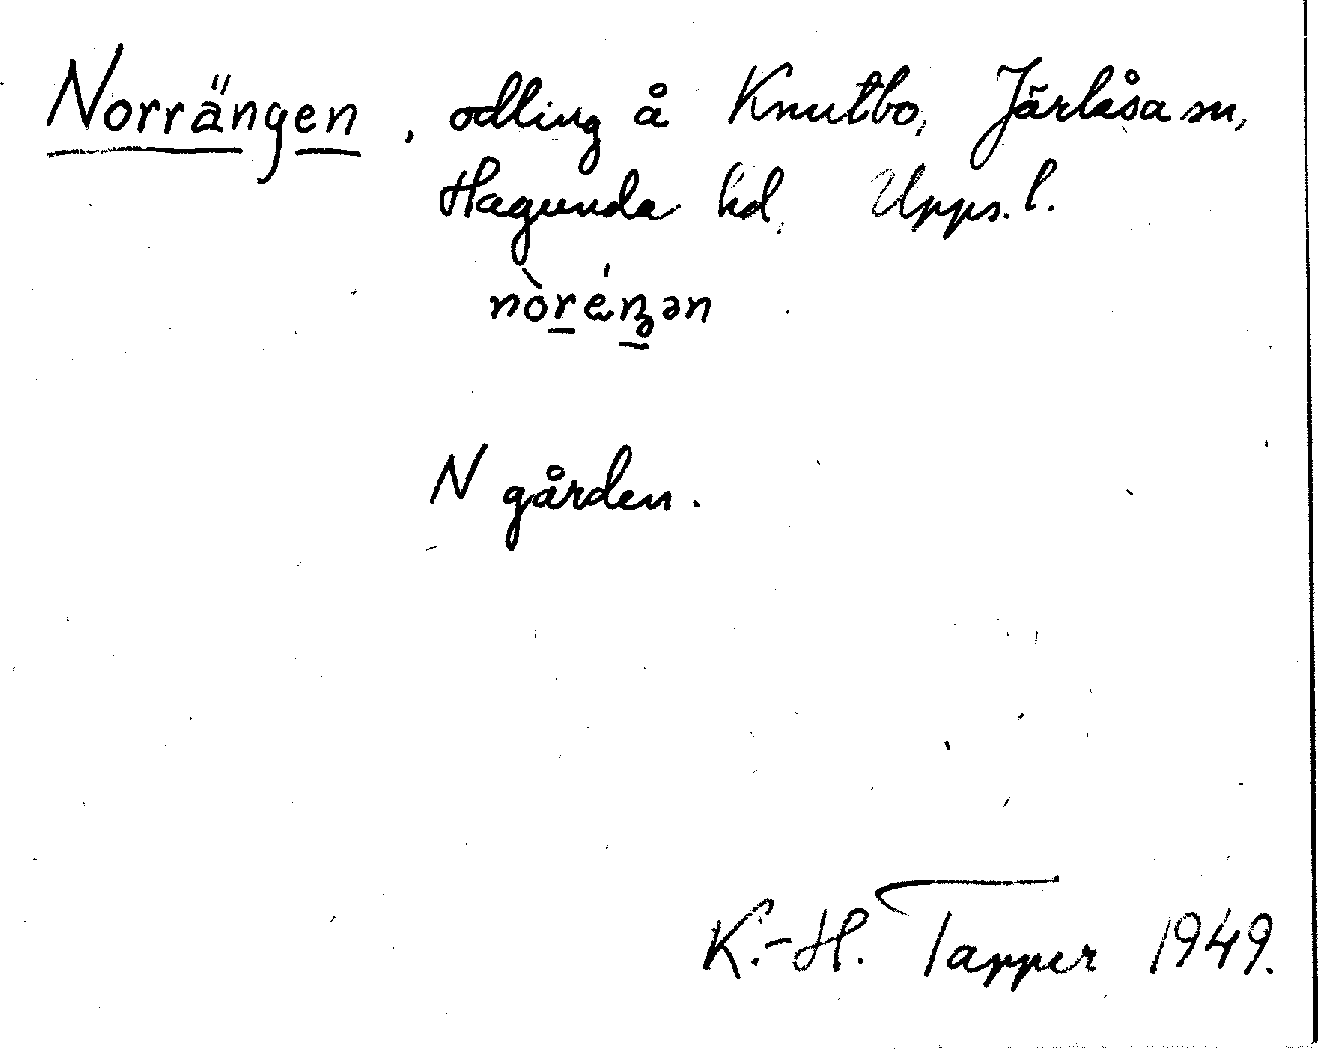 Norrängen, odling å Knutbo, Järlåsa sn,
Hagunda hd, Upps. l.
nòréŋən
N gården.
K.-H. Tapper 1949.